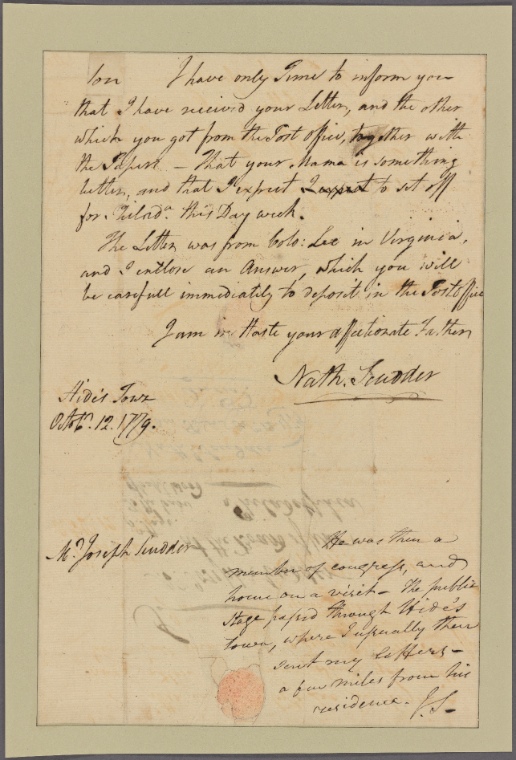 Son I have only Time to inform you
that I have receiv'd your Letter, and the other
which you got from the Post Office, together with
the Papers — That your Mama is something
better, and that I expect I expect to set off
for Philad.ª this Day week.
The Letter was from Colo: Lee in Virginia,
and I enclose an Answer, which you will
be carefull immediately to deposit in the Post Office
I am in Haste your affectionate Father
Nath. Scudder
Hide's Town
Octob.r 12. 1779.
M.r Joseph Scudder
He was then a
member of congress, and
home on a visit — the public
stage passed through Hide's
town, where I usually then
sent my letters —
a few miles from his
residence. J. S—